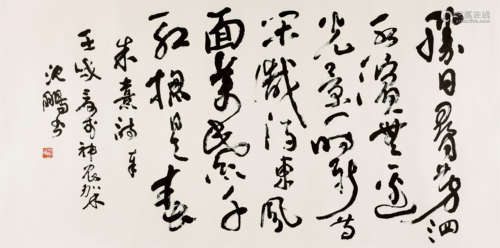 勝日尋芳泗
水濱無邊
光景一時新等
閒識得東風
面萬紫千
紅總是春
朱熹詩
壬戌春於神农架
沈鵬書